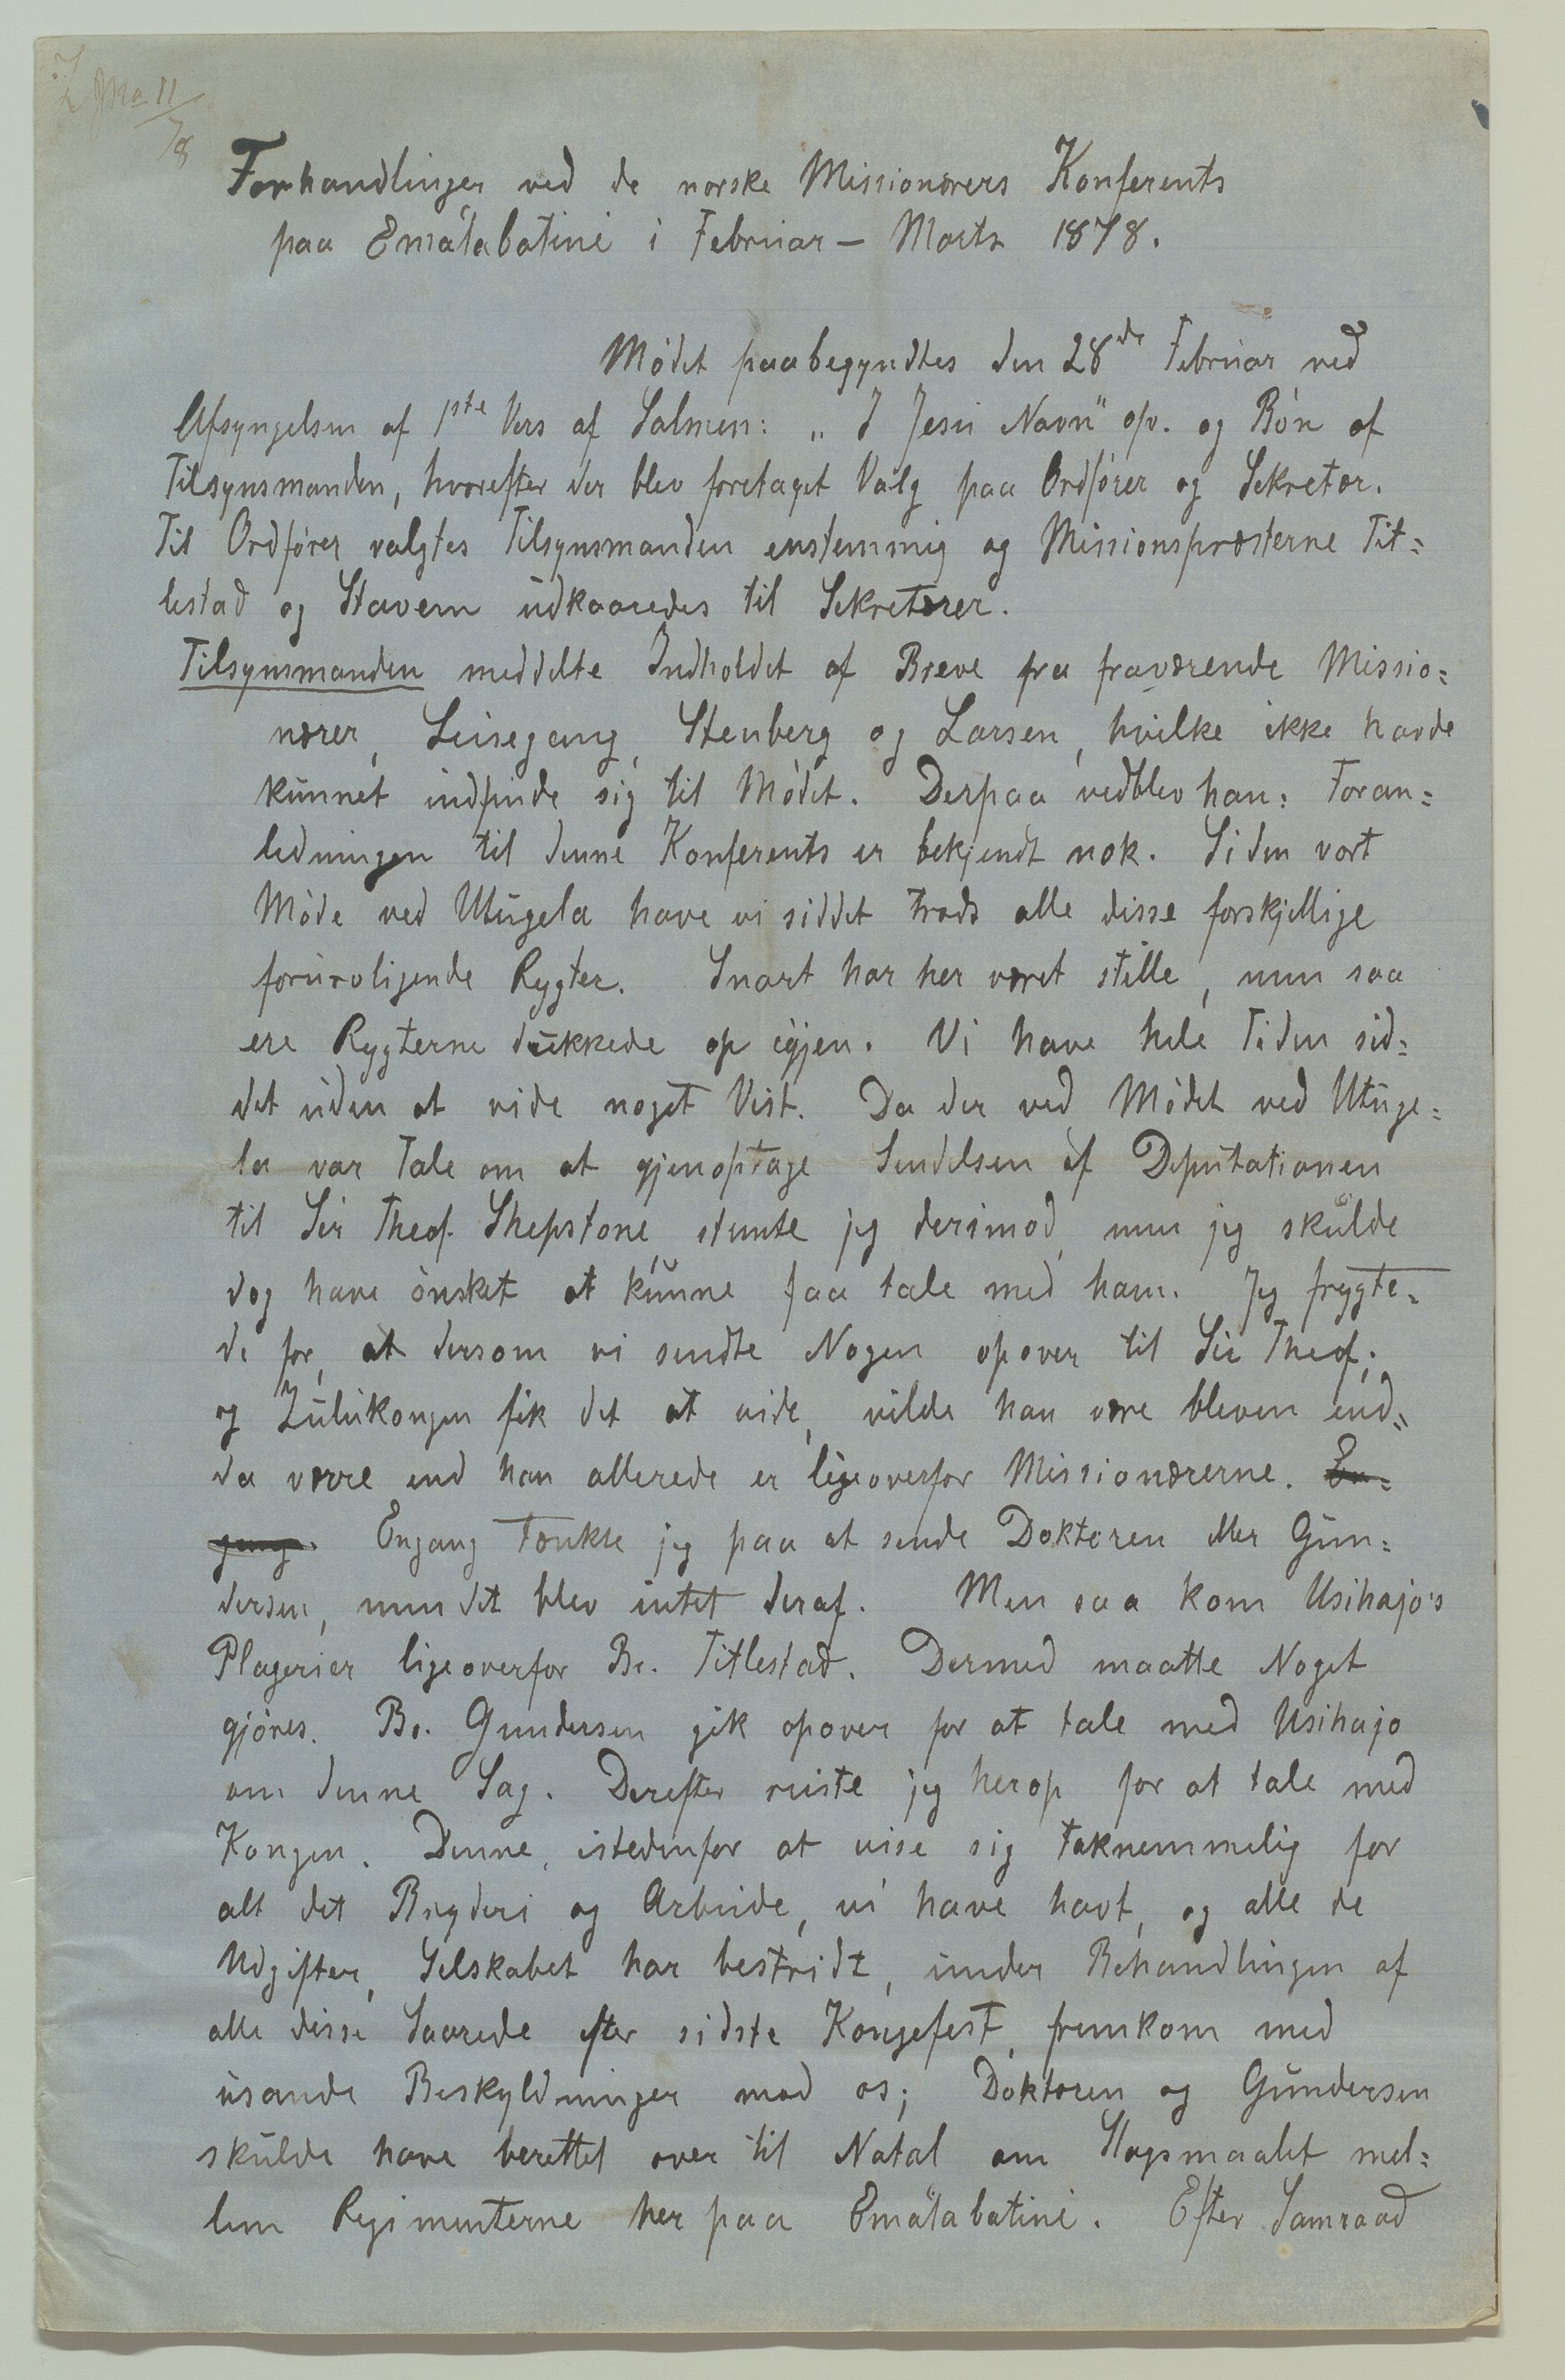 Ma 11
/78
Forhandlinger ved de norske Missionærers Konferents
paa Emátabatini i Februar – Marts 1878.
Mødet paabegyndtes den 28de Februar ved
Afsyngelsen af 1ste Vers af Salmen: „I Jesu Navn" op. og Bøn af
Tilsynsmanden, hvorefter der blev foretaget Valg paa Ordfører og Sekretær.
Til Ordfører valgtes Tilsynsmanden enstemmig og Missionspræsterne Tit=
lestad og Stavem udkaaredes til Sekretærer.
Tilsynsmanden meddelte Indholdet af Breve fra fraværende Missio=
nærer, Leisegang, Stenberg og Larsen, hvilke ikke havde
kunnet indfinde sig til Mødet. Derpaa vedblev han: Foran=
ledningen til denne Konferents er bekjendt nok. Siden vort
Møde ved Utugela have vi siddet trods alle disse forskjellige
foruroligende Rygter. Snart har her været stille, men saa
ere Rygterne dukkede op igjen. Vi have hele Tiden sid=
det uden at vide noget Vist. Da der ved Mødet ved Utuge=
la var Tale om at gjenoptage Sendelsen af Deputationen
til Sir Theof. Shepstone, stemte jeg derimod, men jeg skulde
dog have ønsket at kunne faa tale med ham. Jeg frygte=
de for, at dersom vi sendte Nogen opover til Sir Theof.
og Zulukongen fik det at vide, vilde han være bleven end=
da værre end han allerede er ligeoverfor Missionærerne. En=
gang. Engang tænkte jeg paa at sende Doktoren eller Gun=
dersen, men det blev intet deraf. Men saa kom Usihajo's
Plagerier ligeoverfor Br. Titlestad. Dermed maatte Noget
gjøres. Br. Gundersen gik opover for at tale med Usihajo
om denne Sag. Derefter reiste jeg herop for at tale med
Kongen. Denne, istedenfor at vise sig taknemmelig for
alt det Bryderi og Arbeide, vi have havt, og alle de
Udgifter, Selskabet har bestridt, under Behandlingen af
alle disse Saarede efter sidste Kongefest, fremkom med
usande Beskyldninger mod os; Doktoren og Gundersen
skulde have berettet over til Natal om Slagsmaalet mel=
lem Regimenterne her paa Emátabatini. Efter Samraad